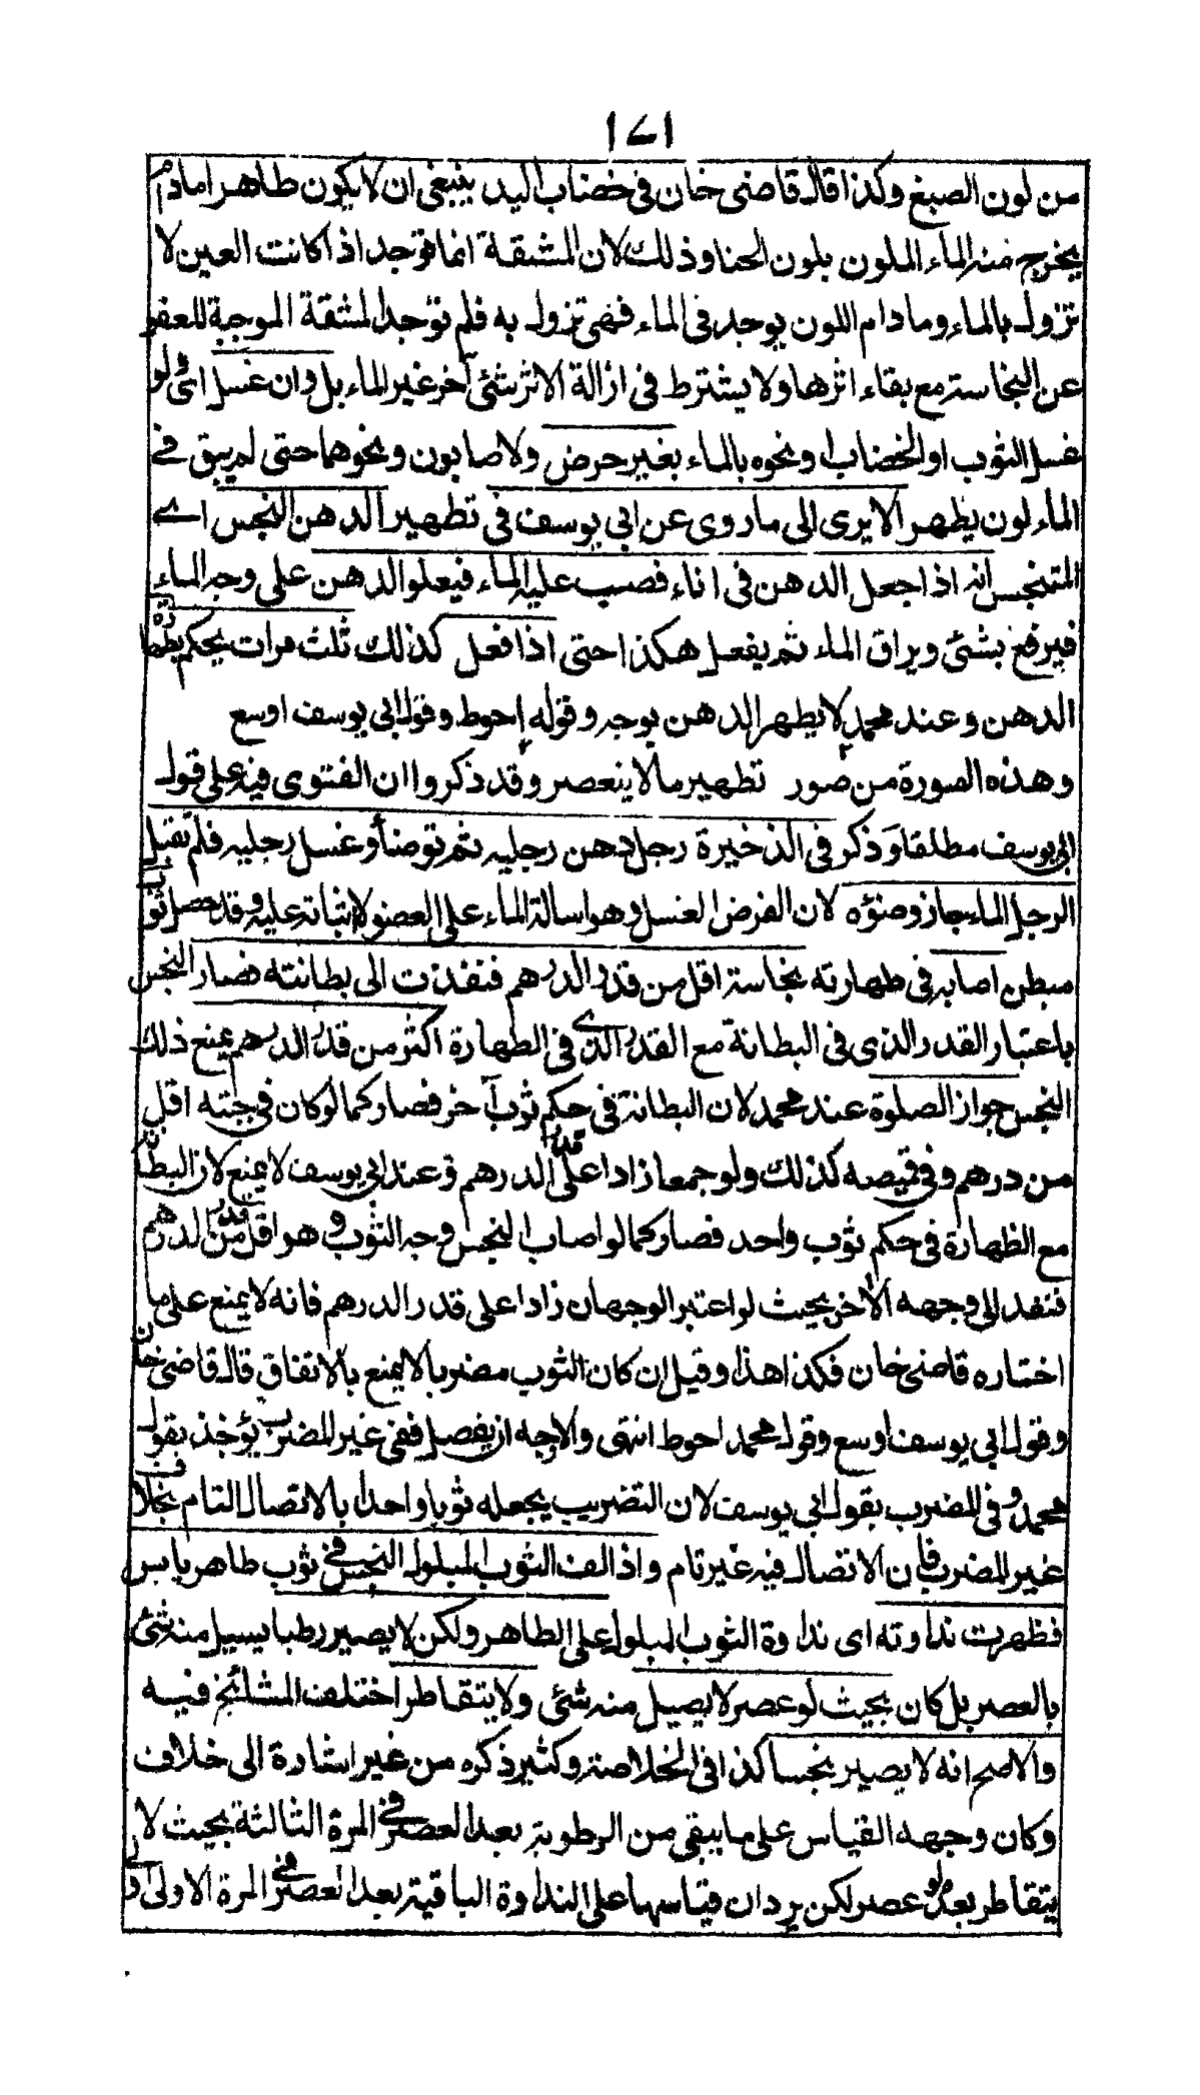 ١٧١
من لون الصبغ وكذا قال قاضى خان فى خضاب اليد ينبغى ان لا يكون طاهرا مادام
يخرج منه الماء الملون بلون الحنا وذلك لان المشقة انما توجد اذا كانت العين لا
تزول بالماء وما دام اللون يوجد فى الماء فهى تزول به فلم توجد المشقة الموجبة للعفو
عن النجاسة مع بقاء اثرها ولا يشترط فى ازالة الاثر شئ آخر غير الماء بل وان غسل اى ولو
غسل الثوب او الخضاب او نحوه بالماء بغير حرض ولا صابون ونحوهما حتى لم يبق فى
الماء لون يظهر الا يرى الى ما روى عن ابى يوسف فى تطهير الدهن النجس اے
المتنجس انه اذا جعل الدهن فى اناء فصب عليه الماء فيعلو الدهن على وجه الماء
فيرفع بشئ ويراق الماء ثم يفعل هكذا حتى اذا فعل كذلك ثلث مرات يحكم بطهارة
الدهن وعند محمد لا يطهر الدهن بوجه وقوله احوط وقول ابى يوسف اوسع
وهذه الصورة من صور تطهير ما لا ينعصر وقد ذكروا ان الفتوى فيه على قول
ابى يوسف مطلقا وذكر فى الذخيرة رجل دهن رجليه ثم توضأ وغسل رجليه فلم تقبل
الرجل الماء جاز وضوؤه لان الفرض الغسل وهو اسالة الماء على العضو لا اثباته عليه وقد حصل ثوب
مبطن اصابه فى طهارته نجاسة اقل من قدر الدرهم فنفذت الى بطانته فصار النجس
باعتبار القدر الذى فى البطانة مع القدر الذى فى الطهارة اكثر من قدر الدرهم يمنع ذلك
النجس جواز الصلوة عند محمد لان البطانة فى حكم ثوب آخر فصار كما لو كان فى جبته اقل
من درهم وفى قميصه كذلك ولو جمعا زادا على قدر الدرهم وعند ابى يوسف لا يمنع لان البطانة
مع الظهارة فى حكم ثوب واحد فصار كما لو اصاب النجس وجه الثوب وهو اقل من قدر الدرهم
فنفد الى وجهه الآخر بحيث لو اعتبر الوجهان زادا على قدر الدرهم فانه لا يمنع على ما
اختاره قاضى خان فكذا هذا وقيل ان كان الثوب مضربا لا يمنع بالاتفاق قال قاضى خان
وقول ابى يوسف اوسع وقول محمد احوط انتهى والاوجه ان يفصل ففى غير المضرب يؤخذ بقول
محمد وفى المضرب بقول ابى يوسف لان التضريب يجعله ثوبا واحدا بالاتصال التام بخلاف
غير المضرب فان الاتصال فيه غير تام واذا لف الثوب المبلول النجس فى ثوب طاهر يابس
فظهرت نداوته اى نداوة الثوب المبلول على الطاهر ولكن لا يصير رطبا يسيل منه شئ
بالعصر بل كان بحيث لو عصر لا يصيل منه شئ ولا يتقاطر اختلف المشائخ فيه
والاصح انه لا يصير نجسا كذا فى الخلاصة وكثير ذكره من غير اشارة الى خلاف
وكان وجهه القياس على ما يبقى من الرطوبة بعد العصر فى المرة الثالثة بحيث لا
يتقاطر بعد لو عصر لكن يرد ان قياسها على النداوة الباقية بعد العصر فى المرة الاولى